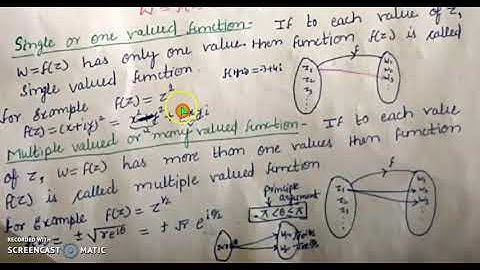 Single or one valued function- If to each value of z,
W=f(z) has only one value. then function f(z) is called
Single valued function
f(1+2i) = -3+4i
for Example f(z) = z²
f(z) = (x+iy)² = x²-y²+2xyi
f
z₁
z₂
z₃
w₁
w₂
w₃
Multiple valued or many valued function- If to each value
of z, W=f(z) has more than one values then function
f(z) is called multiple valued function
for Example f(z) = z^½
= ± √re^iθ = ± √r e^iθ/2
principle
argument
-π<θ≤π
f
z₁
z₂
z₃
w₁
w₂
w₃
RECORDED WITH
SCREENCAST MATIC